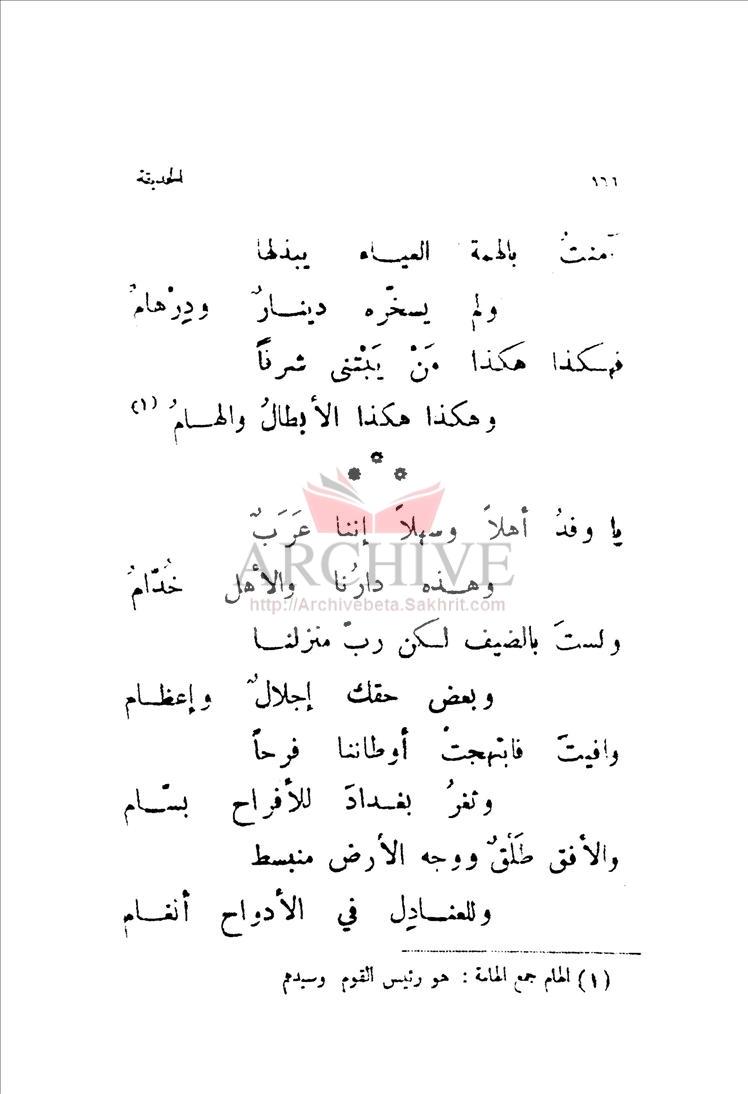 ١٦٦ الحديقة
آمنتُ بالهمة العلياء يبذلها
ولم يسخّره دينارٌ ودِرْهامُ
فهكذا هكذا مَنْ يَبْتني شرفاً
وهكذا هكذا الأبطالُ والهامُ (١)
يا وفدُ أهلاً وسهلاً إننا عَرَبٌ
ARCHIVE
وهذه دارُنا والأهل خُدّامُ
http://Archivebeta.Sakhrit.com
ولستَ بالضيف لكن ربّ منزلنا
وبعض حقك إجلالٌ وإعظام
وافيتَ فابتهجتْ أوطاننا فرحاً
وثغرُ بغدادَ للأفراح بسّام
والأفق طَلْقٌ ووجه الأرض منبسط
وللعنادِل في الأدواح أنغام
(١) الهام جمع الهامة : هو رئيس القوم وسيدهم